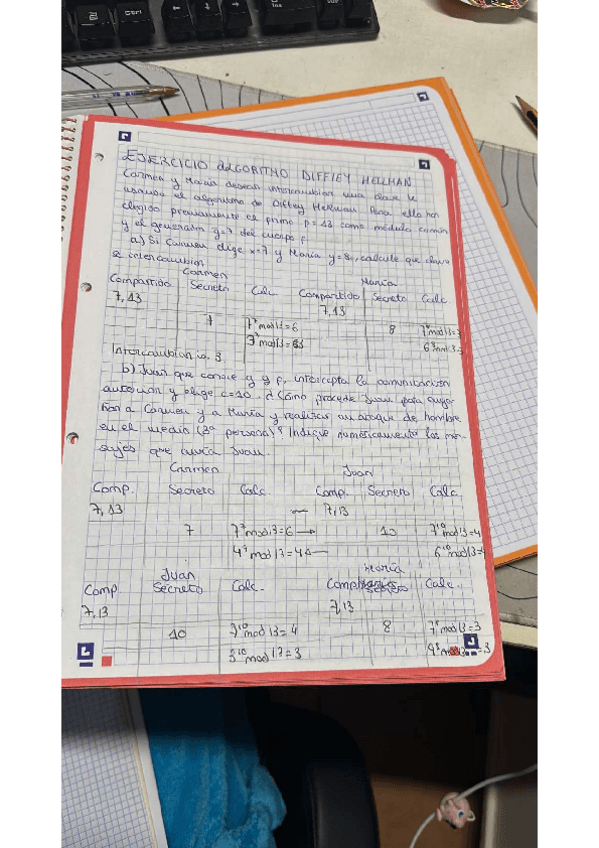 EJERCICIO ALGORITMO DIFFIEY HELLMAN
Carmen y María desean intercambiar una clave
usando el algoritmo de Diffey Hellman. Para ello han
elegido previamente el primo p=13 como módulo común
y el generador g=7 del cuerpo
a) Si Carmen elige x=7 y María y=8, calcule que clave
se intercambian
Carmen María
Compartido Secreto Calc Compartido Secreto Calc
7, 13 7, 13
7 7⁷mod13=6 8 7⁸mod13=3
3⁷mod13= 6⁸mod13=3
Intercambian 3
b) Juan que conoce g y p, intercepta la comunicación
anterior y elige c=10. ¿Cómo procede Juan para enga
ñar a Carmen y a María y realizar un ataque de hombre
en el medio (3ª persona)? Indique numéricamente los men
sajes que envía Juan.
Carmen Juan
Comp. Secreto Calc. Comp. Secreto Calc.
7, 13 7, 13
7 7⁷mod13=6 → 10 7¹⁰mod13=4
4⁷mod13=4 ← 6¹⁰mod13=4
Juan María
Comp Secreto Calc. Comp Secreto Calc.
7, 13 7, 13
10 7¹⁰mod13=4 8 7⁸mod13=3
3¹⁰mod13=3 4⁸mod13=3
Ctrl